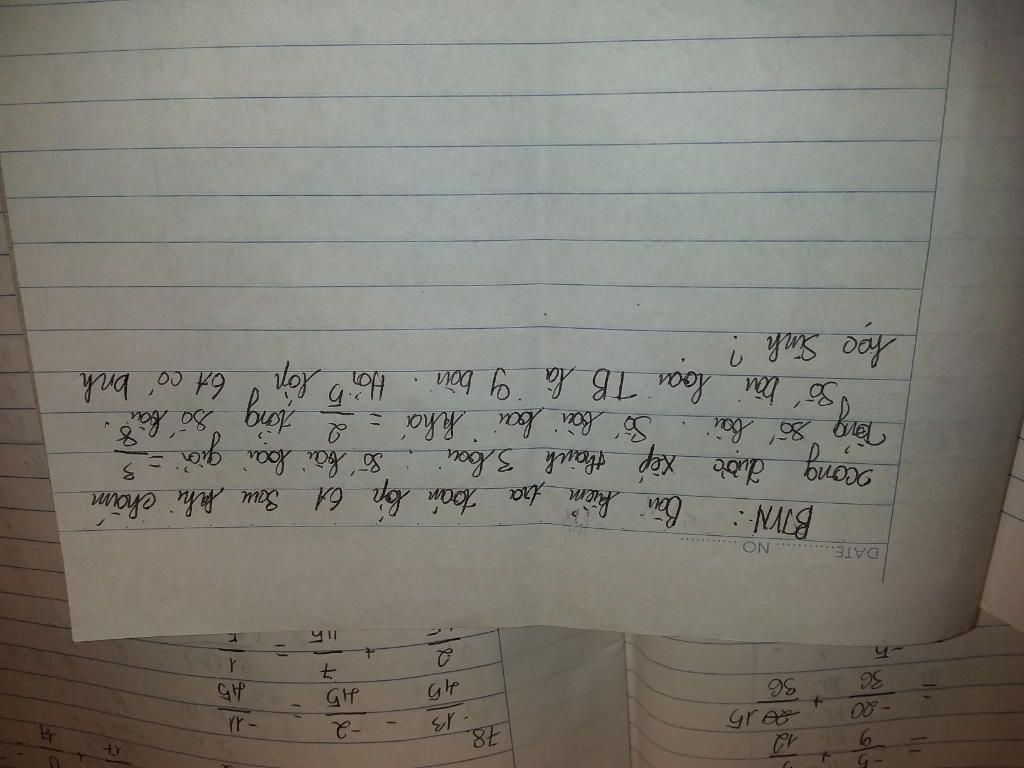 DATE NO
BTVN: Bài kiểm tra toán lớp 6A sau khi chấm
xong được xếp thành 3 loại. Số bài loại giỏi = 3/8
tổng số bài. Số bài loại khá = 2/5 tổng số bài.
Số bài loại TB là 9 bài. Hỏi lớp 6A có bnh
học sinh?
78. -13/45 - -2/45 = -11/45
2/ + 7/45 = 1/5
= -5/9 + /12
= -20/36 + 15/36
-5